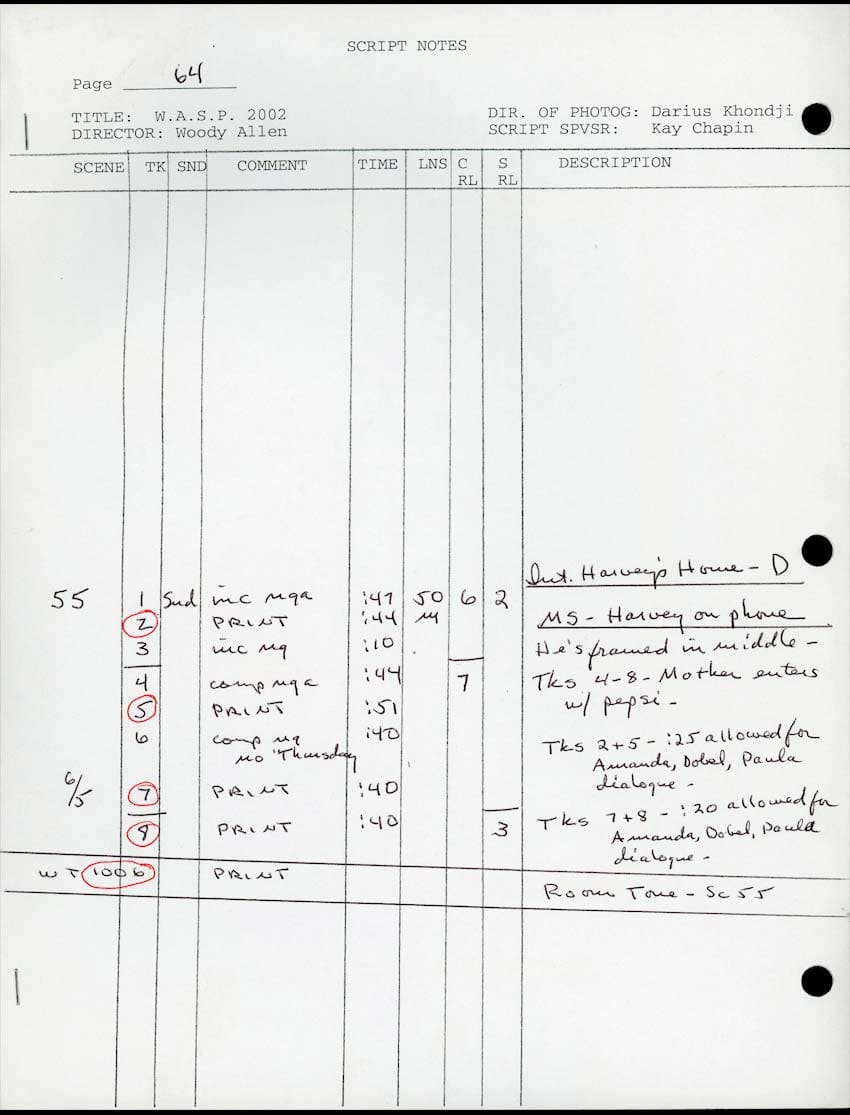 SCRIPT NOTES
Page 64
TITLE: W.A.S.P. 2002 DIR. OF PHOTOG: Darius Khondji
DIRECTOR: Woody Allen SCRIPT SPVSR: Kay Chapin
SCENE TK SND COMMENT TIME LNS C RL S RL DESCRIPTION
Int. Harvey's Home - D
55 1 Snd inc nga :47 50 6 2
2 PRINT :44 M MS - Harvey on phone
3 inc ng :10 He's framed in middle -
4 comp nga :44 7 Tks 4-8 - Mother enters
5 PRINT :51 w/ pepsi -
6 comp ng :40 Tks 2+5 - :25 allowed for
no "Thursday Amanda, Dobel, Paula
dialogue -
6/5 7 PRINT :40
Tks 7+8 - :20 allowed for
8 PRINT :40 3 Amanda, Dobel, Paula
dialogue -
WT 1006 PRINT
Room Tone - Sc 55